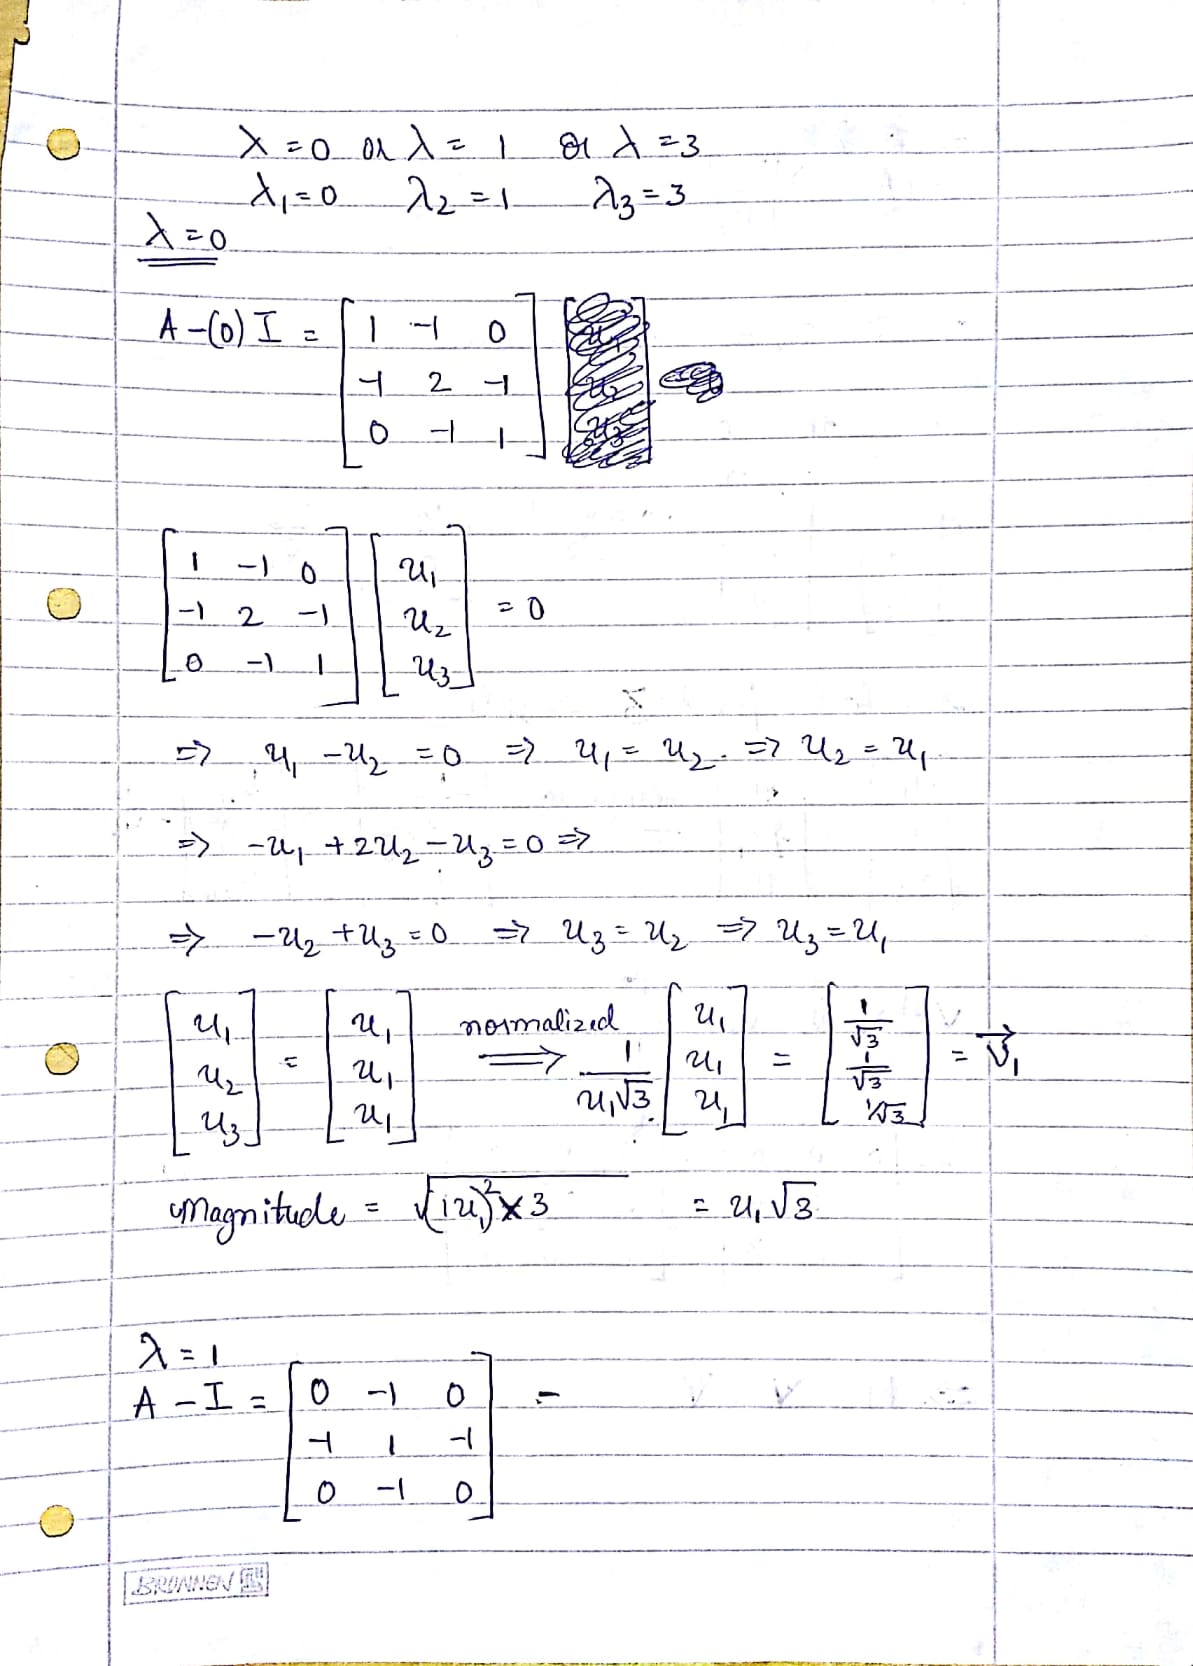 λ = 0 or λ = 1 or λ = 3
λ₁ = 0 λ₂ = 1 λ₃ = 3
λ = 0
A - (0) I = [ 1 -1 0
-1 2 -1
0 -1 1 ]
[ 1 -1 0
-1 2 -1
0 -1 1 ] [ u₁
u₂
u₃ ] = 0
=> u₁ - u₂ = 0 => u₁ = u₂. => u₂ = u₁
=> -u₁ + 2u₂ - u₃ = 0 =>
=> -u₂ + u₃ = 0 => u₃ = u₂ => u₃ = u₁
[ u₁
u₂
u₃ ] = [ u₁
u₁
u₁ ] normalized ⟹ 1/(u₁√3) [ u₁
u₁
u₁ ] = [ 1/√3
1/√3
1/√3 ] = v⃗₁
Magnitude = √(1u)² × 3 = u₁√3
λ = 1
A - I = [ 0 -1 0
-1 1 -1
0 -1 0 ] =
BRUNNEN